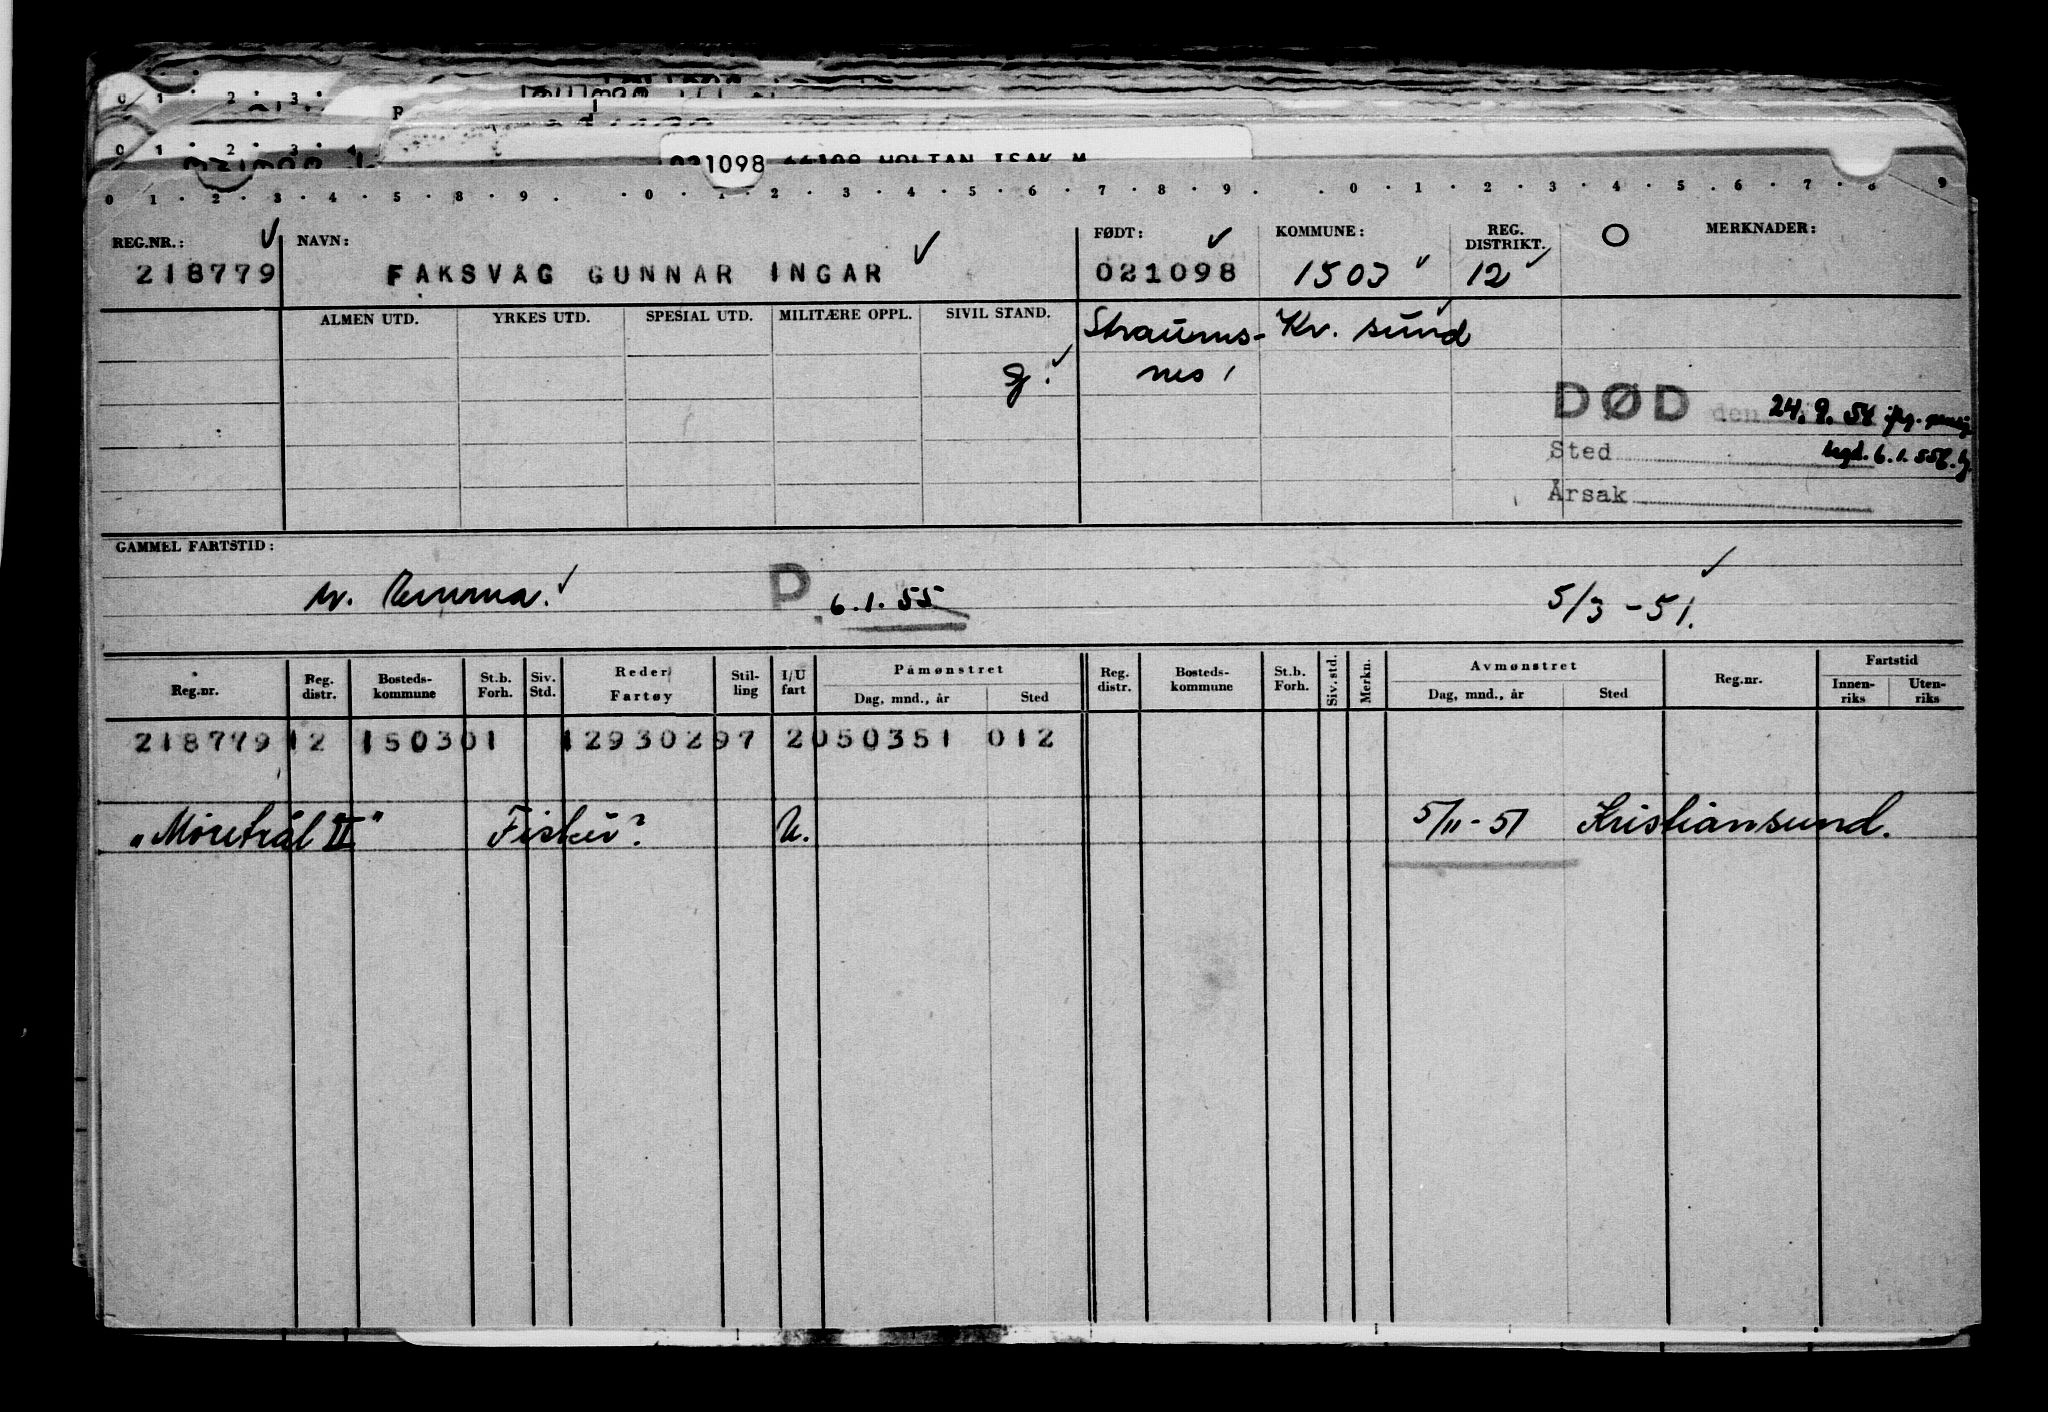 0 1 · 2 · 3 ·
0 1 · 2 · 3 · 4
021098 HOLTAN ISAK M
0 1 · 2 · 3 · 4 · 5 · 8 · 9 · · 0 · 1 · 2 · 3 · 4 · 5 · 6 · 7 · 8 · 9 · · 0 · 1 · 2 · 3 · 4 · 5 · 6 · 7 · 8 · 9
REG.NR.: NAVN: FØDT: KOMMUNE: REG. DISTRIKT. MERKNADER:
218779 FAKSVÅG GUNNAR INGAR 021098 1503 12
ALMEN UTD. YRKES UTD. SPESIAL UTD. MILITÆRE OPPL. SIVIL STAND.
Straums- Kv. sund
g. nes
DØD den 24.9.54
Sted 6.1.55
Årsak
GAMMEL FARTSTID:
P 6.1.55 5/3-51.
Reg.nr. Reg. distr. Bosteds-kommune St.b. Forh. Siv. Std. Reder Fartøy Stil-ling I/U fart Påmønstret Dag, mnd., år Sted Reg. distr. Bosteds-kommune St.b. Forh. Siv. std. Merkn. Avmønstret Dag, mnd., år Sted Reg.nr. Fartstid Innen-riks Uten-riks
218779 12 150301 12930297 2050351 012
"Møretrål II" Fisker? U. 5/11-51 Kristiansund.